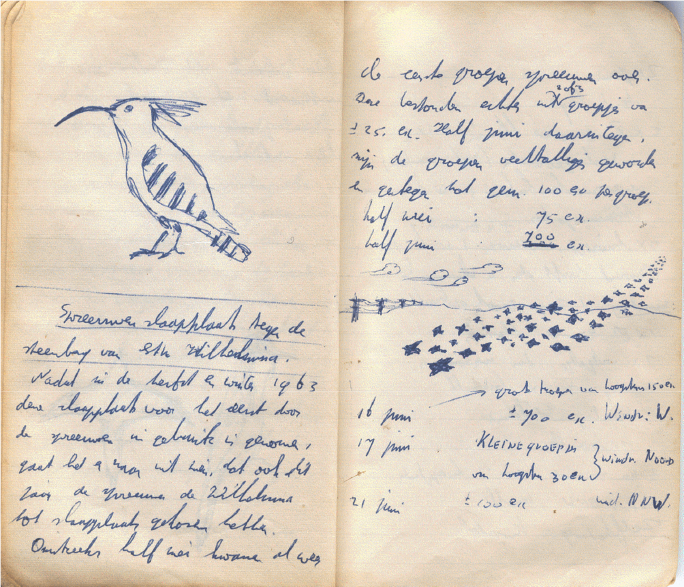 Spreeuwen slaapplaats tege de
steenberg van Stn Wilhelmina.
Nadat in de herfst en winter 1963
deze slaapplaats voor het eerst door
de spreeuwen in gebruik is genomen,
gaat het er naar uit zien, dat ook dit
jaar de spreeuwen de Wilhelmina
tot slaapplaats gekozen hebben.
Omstreeks half mei kwamen al weer
de eerste groepen spreeuwen over.
Deze bestonden echter uit groepjes van
± 25 ex. Half juni daarentegen,
zijn de groepen veeltallig geworden
en gestegen tot gem. 100 ex per groep.
half mei : 75 ex.
half juni 700 ex.
groote troepen van hoogstens 150 ex
16 juni ± 700 ex. Windr: W.
17 juni KLEINE GROEPJES
van hoogstens 30 ex windr. NOORD
21 juni ± 100 ex wid. NNW.